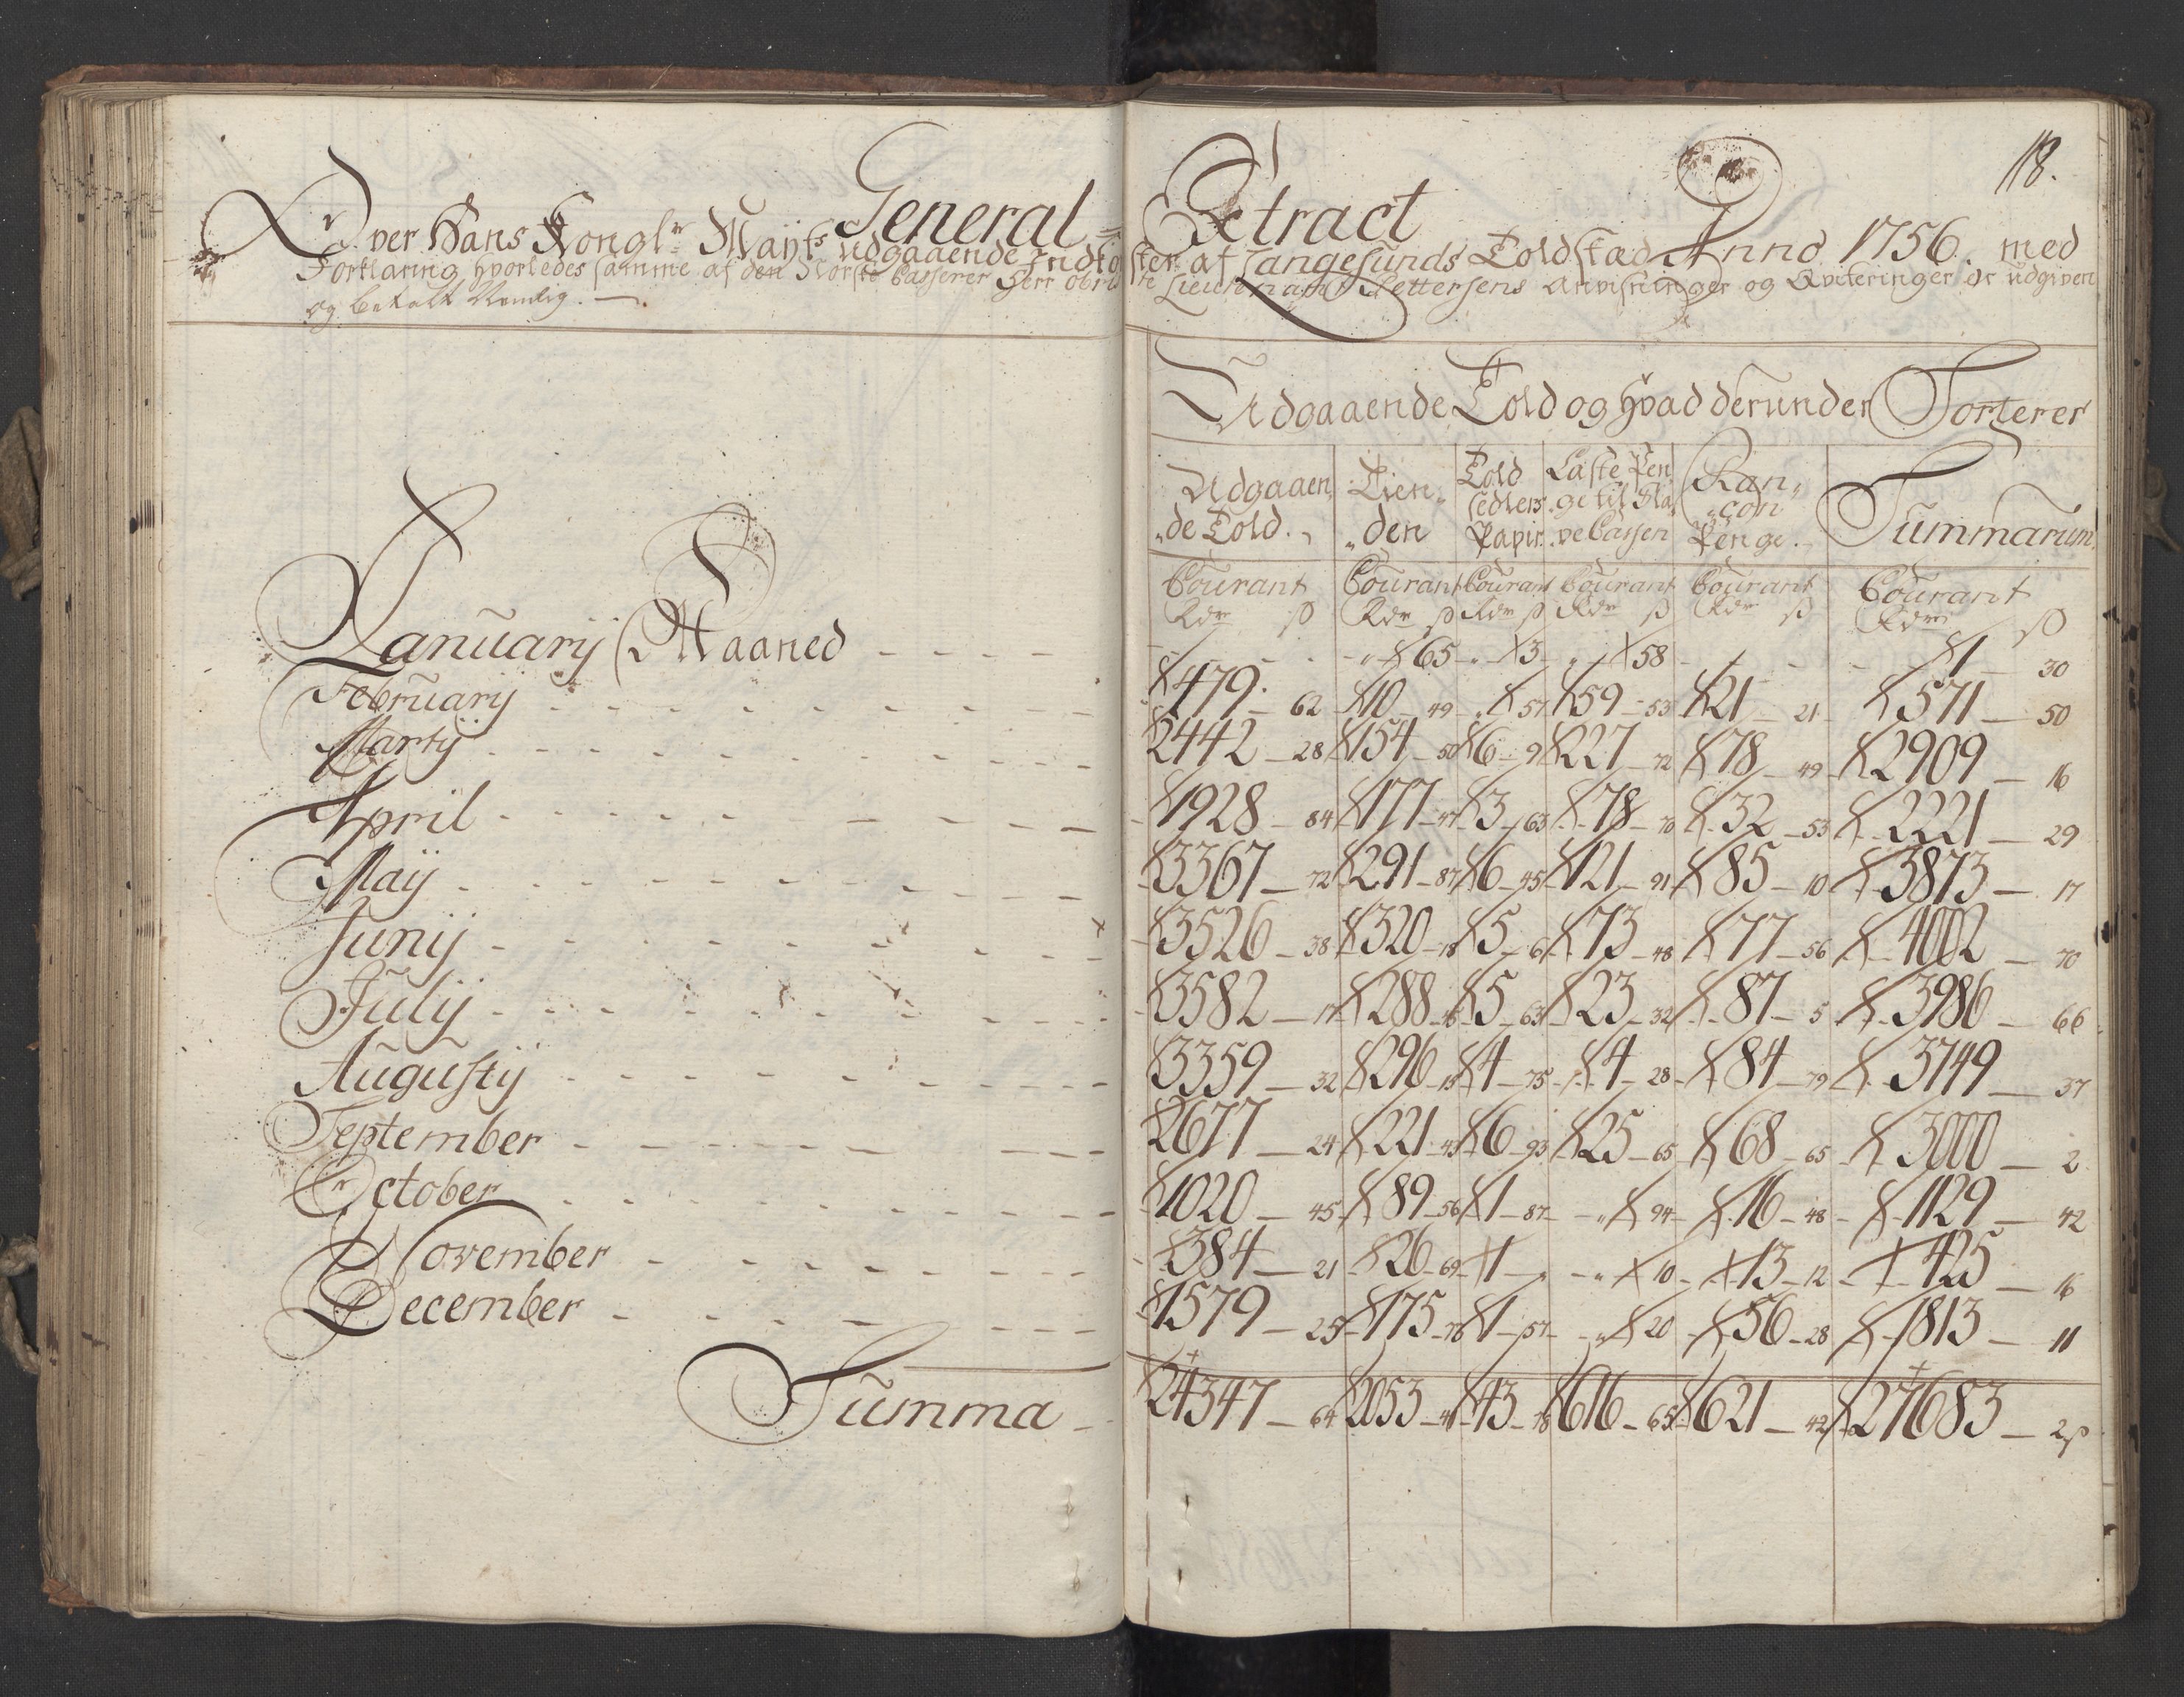 118.
General = Extract
Over Hans Kongl: Mayts udgaaende Indkomster af Langesunds Toldstæd Anno 1756. med
Forklaring hvorledes samme af den Norske Casserer Herr Obrist Lieutenant Pettersens Anvisninger og Qviteringer er udgiven
og betalt Nemlig. —
Udgaaende Told og hvad derunder Sorterer
Udgaaende Told. | Tienden | Told Sedlers Papir. | Laste Penge til Slave Cassen | Rancon Penge. | Summarum
Courant | Courant | Courant | Courant | Courant | Courant
Rdr ß | Rdr ß | Rdr ß | Rdr ß | Rdr ß | Rdr ß
Januarij Maaned - - - - | - - | " 65 | " 3 | " 58 | - - | 1 — 30
Februarij - - - - | 479. — 62 | 10 — 49 | " 57 | 59 — 53 | 21 — 21 | 571 — 50
Martij - - - - | 2442 — 28 | 154 — 50 | 6 — 9 | 227 — 72 | 78 — 49 | 2909 — 16
April - - - - | 1928 — 84 | 177 — 47 | 3 — 63 | 78 — 70 | 32 — 53 | 2221 — 29
Maij - - - - | 3367 — 72 | 291 — 87 | 6 — 45 | 121 — 91 | 85 — 10 | 3873 — 17
Junij - - - - | 3526 — 38 | 320 — 18 | 5 — 6 | 73 — 48 | 77 — 56 | 4002 — 70
Julij - - - - | 3582 — 17 | 288 — | 5 — 63 | 23 — 32 | 87 — 5 | 3986 — 66
Augustij - - - - | 3359 — 32 | 296 — 15 | 4 — 75 | 4 — 28 | 84 — 79 | 3749 — 37
September - - - - | 2677 — 24 | 221 — 43 | 6 — 93 | 25 — 65 | 68 — 65 | 3000 — 2
October - - - - | 1020 — 45 | 89 — 56 | 1 — 87 | " 94 | 16 — 48 | 1129 — 42
November - - - - | 384 — 21 | 26 — 69 | 1 — " | " 10 | 13 — 12 | 425 — 16
December - - - - | 1579 — 25 | 175 — 78 | 1 — 57 | " 20 | 56 — 28 | 1813 — 11
Summa - | 24347 — 64 | 2053 — 41 | 43 — 78 | 616 — 65 | 621 — 42 | 27683 — 2ß